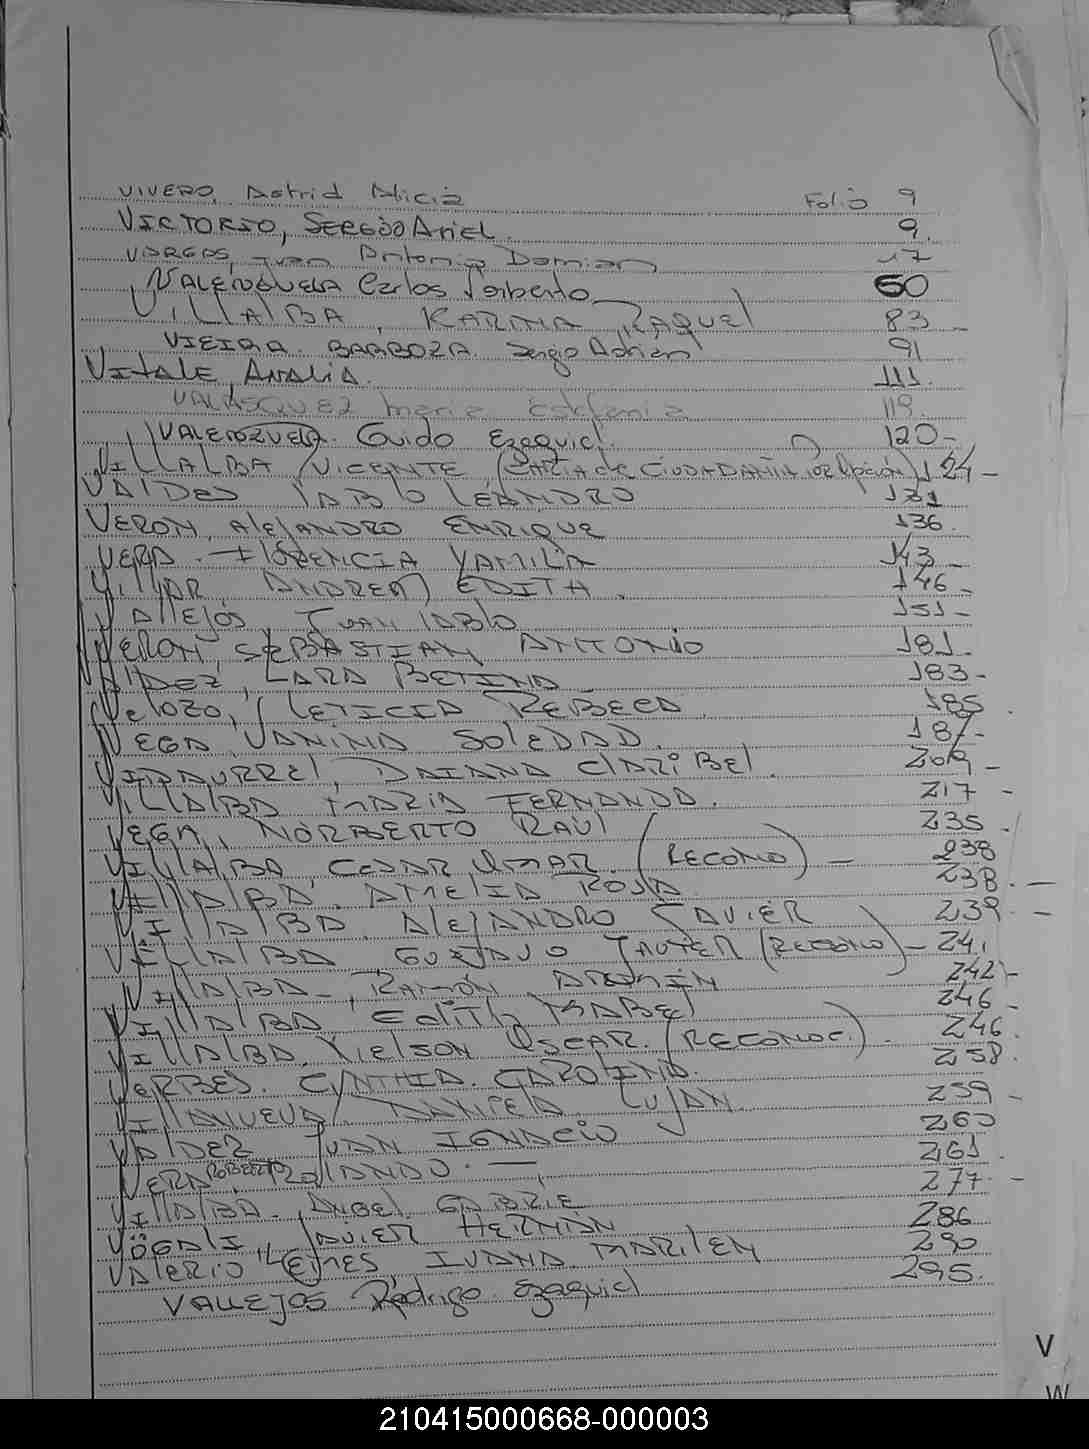 VIVERO, Astrid Alicia Folio 9
VICTORIO, SERGIO Ariel. 9.
VARGAS, Juan Antonio Damian 17
VALENZUELA Carlos Norberto 60
VILLALBA, KARINA RAQUEL 83
VIEIRA BARBOZA Sergio Adrian 91
VITALE, ANALIA. 111.
VALASQUEZ Maria Estefania 119.
VALENZUELA Guido Ezequiel. 120-
VILLALBA VICENTE (CARTA de CIUDADANIA POR OPCIÓN) 124-
VALDES PABLO LEANDRO 131
VERON, AlejANDRO ENRIQUE 136.
VERA FLORENCIA YAMILA 143-
VILLAR, ANDREA EDITH. 146-
VALLEJOS, JUAN PABLO 151-
VERON, SEBASTIAN ANTONIO 181.
VALDEZ, LARA BETINA 183-
VELOZO, LETICIA REBECA 185.
VEGA VANINA SOLEDAD. 187-
DAIANA CLARIBEL. 209-
VILLALBA MARIA FERNANDA. 217-
VEGA, NORBERTO RAUL 235
VILLALBA, CESAR OMAR. (RECONO) - 238
VILLALBA, AMELIA ROSA 238.-
VILLALBA, ALEJANDRO JAVIER 239.-
VILLALBA GUSTAVO JAVIER (RECONO) - 241
VILLALBA, RAMÓN 242-
VILLALBA EDITH MABEL 246-
VILLALBA NELSON OSCAR. (RECONOC.). 246.
VERBES. CYNTHIA. CAROLINA. 258.
VILLANUEVA DANIELA LUJAN 259-
VALDEZ JUAN IGNACIO 260
VERA ROBERTO ROLANDO. - 261.
VILLALBA, ANGEL GABRIEL 277.-
JAVIER HERNÁN 286
VALERIO IVANA MARILEN 290
VALLEJOS Rodrigo Ezequiel 295.
V
W
210415000668-000003